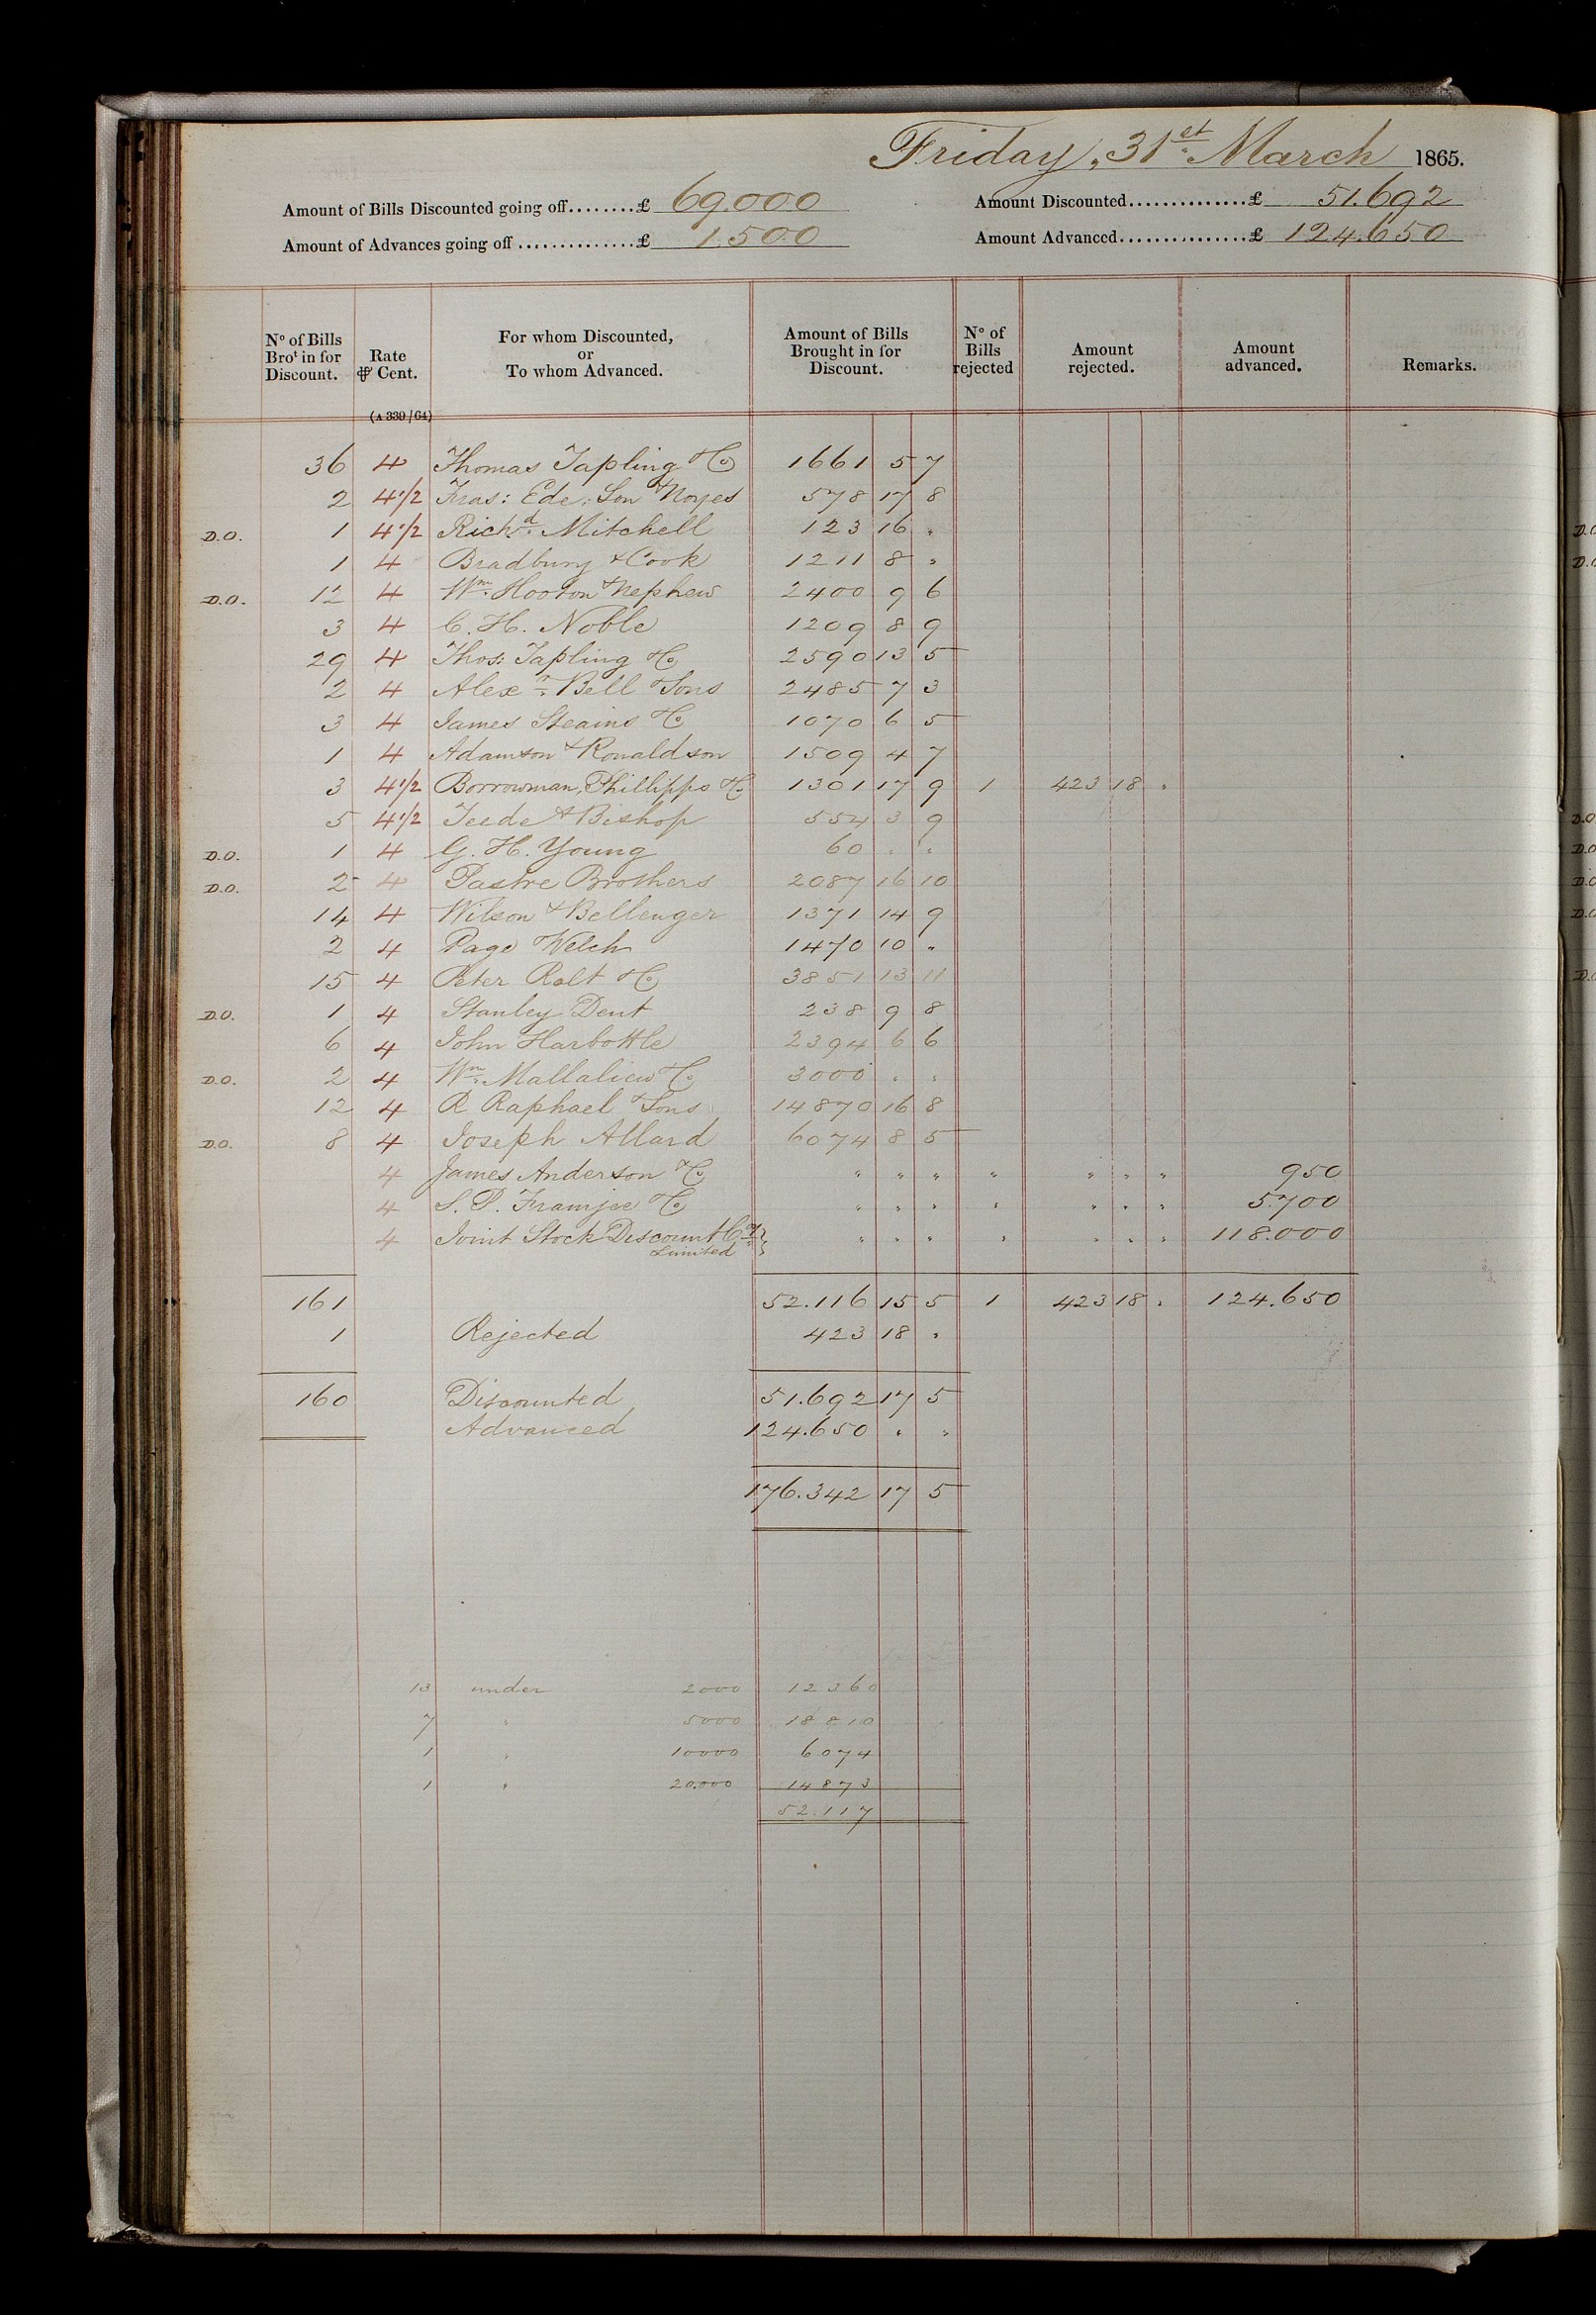 Friday, 31st March 1865.
Amount of Bills Discounted going off........£ 69.000
Amount Discounted...............£ 51.692
Amount of Advances going off..............£ 1.500
Amount Advanced................£ 124.650
No of Bills Brot in for Discount. Rate ⅌ Cent. For whom Discounted, or To whom Advanced. Amount of Bills Brought in for Discount. No of Bills rejected Amount rejected. Amount advanced. Remarks.
(A 339/64)
36 4 Thomas Tapling & Co 1661 5 7
2 4 1/2 Fras: Ede, Son & Noyes 578 17 8
D.O. 1 4 1/2 Richd. Mitchell 123 16 "
1 4 Bradbury & Cook 1211 8 "
D.O. 12 4 Wm. Hooton & Nephew 2400 9 6
3 4 C. H. Noble 1209 8 9
29 4 Thos: Tapling & Co 2590 13 5
2 4 Alexr. Bell & Sons 2485 7 3
3 4 James Steains & Co 1070 6 5
1 4 Adamson & Ronaldson 1509 4 7
3 4 1/2 Borrowman, Phillipps & Co 1301 17 9 1 423 18 "
5 4 1/2 Teede & Bishop 554 3 9
D.O. 1 4 G. H. Young 60 " "
D.O. 2 4 Pastre Brothers 2087 16 10
14 4 Wilson & Bellenger 1371 14 9
2 4 Page & Welch 1470 10 "
15 4 Peter Rolt & Co 3851 13 11
D.O. 1 4 Stanley Dent 238 9 8
6 4 John Harbottle 2394 6 6
D.O. 2 4 Wm. Mallalieu & Co 3000 " "
12 4 R Raphael & Sons 14870 16 8
D.O. 8 4 Joseph Allard 6074 8 5
4 James Anderson & Co " " " " " " " 950
4 S. P. Framjee & Co " " " " " " " 5.700
4 Joint Stock Discount Coy " " " " " " " 118.000
Limited
161 52.116 15 5 1 423 18 " 124.650
1 Rejected 423 18 "
160 Discounted 51.692 17 5
Advanced 124.650 " "
176.342 17 5
13 under 2000 12360
7 " 5000 18810
1 " 10000 6074
1 " 20.000 14873
52.117